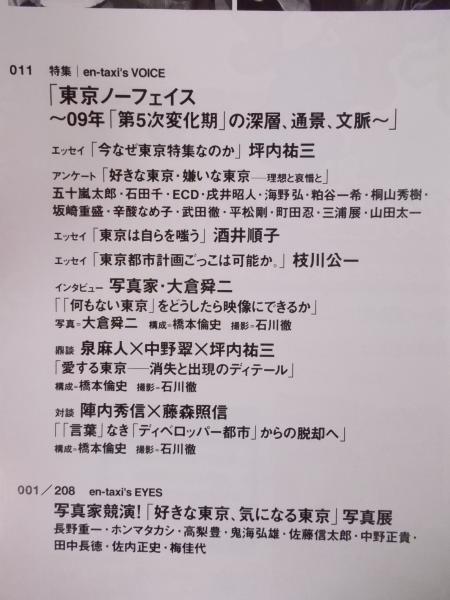 011 特集｜en-taxi's VOICE
「東京ノーフェイス
〜09年「第5次変化期」の深層、通景、文脈〜」
エッセイ「今なぜ東京特集なのか」坪内祐三
アンケート「好きな東京・嫌いな東京——理想と哀惜と」
五十嵐太郎・石田千・ECD・戌井昭人・海野弘・粕谷一希・桐山秀樹・
坂崎重盛・辛酸なめ子・武田徹・平松剛・町田忍・三浦展・山田太一
エッセイ「東京は自らを嗤う」酒井順子
エッセイ「東京都市計画ごっこは可能か。」枝川公一
インタビュー 写真家・大倉舜二
「「何もない東京」をどうしたら映像にできるか」
写真=大倉舜二 構成=橋本倫史 撮影=石川徹
鼎談 泉麻人×中野翠×坪内祐三
「愛する東京——消失と出現のディテール」
構成=橋本倫史 撮影=石川徹
対談 陣内秀信×藤森照信
「「言葉」なき「ディベロッパー都市」からの脱却へ」
構成=橋本倫史 撮影=石川徹
001／208 en-taxi's EYES
写真家競演!「好きな東京、気になる東京」写真展
長野重一・ホンマタカシ・高梨豊・鬼海弘雄・佐藤信太郎・中野正貴・
田中長徳・佐内正史・梅佳代